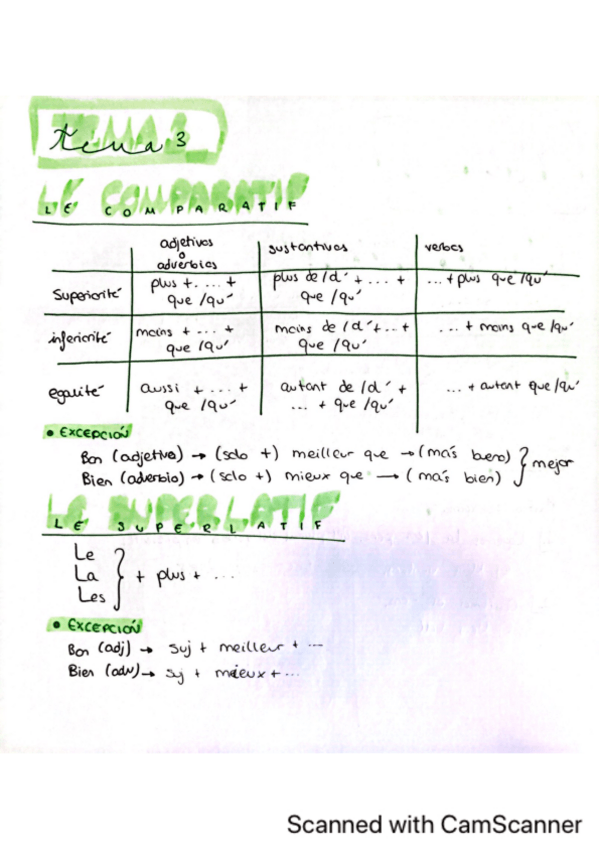 tema 3
LE COMPARATIF
adjetivos o adverbios | sustantivos | verbos
Superiorité | plus + ... + que /qu' | plus de /d' + ... + que /qu' | ... + plus que /qu'
inferiorité | moins + ... + que /qu' | moins de /d' + ... + que /qu' | ... + moins que /qu'
egalité | aussi + ... + que /qu' | autant de /d' + ... + que /qu' | ... + autant que /qu'
• EXCEPCIÓN
Bon (adjetivo) → (solo +) meilleur que → (más bueno) } mejor
Bien (adverbio) → (solo +) mieux que → (más bien)
LE SUPERLATIF
Le
La } + plus + ...
Les
• EXCEPCIÓN
Bon (adj) → suj + meilleur + ...
Bien (adv) → sj + mieux + ...
Scanned with CamScanner